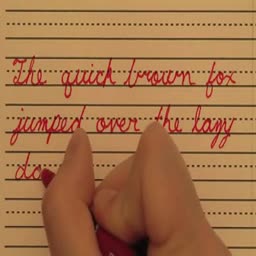 The quick brown fox
jumped over the lazy
do